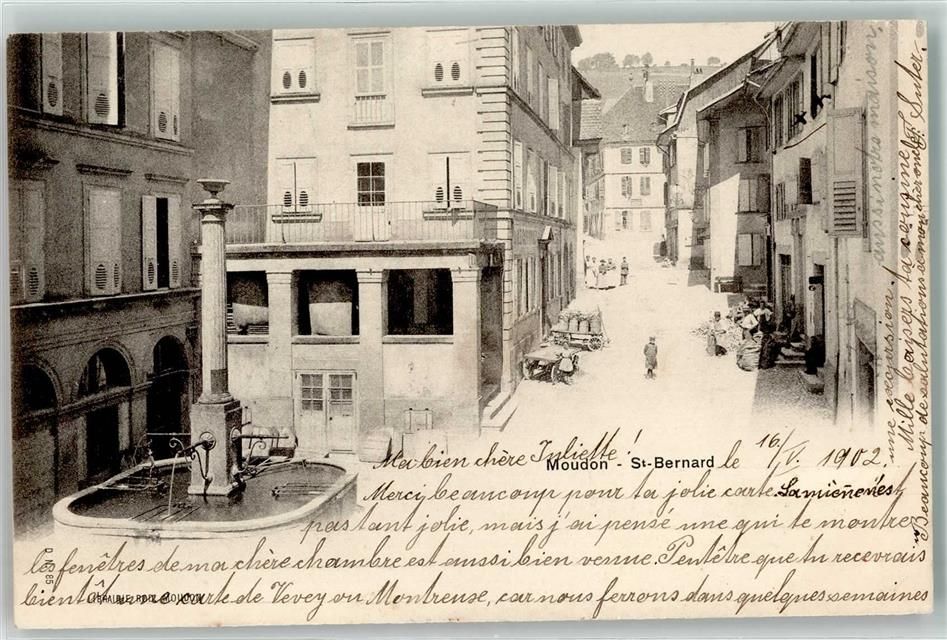 Ma bien chère Juliette! le 16/V. 1902.
Moudon - St-Bernard
Merci, beaucoup pour ta jolie carte. La mienne n'est
pas tant jolie, mais j'ai pensé une qui te montrer
les fenêtres de ma chère chambre est aussi bien venue. Peutêtre que tu recevrais
bientôt une carte de Vevey ou Montreux, car nous ferrons dans quelques semaines
une exgursion.
Mille baisers ta cousine Suter.
Beaucoup de salutations à mon chèr oncle
aussi notre maison